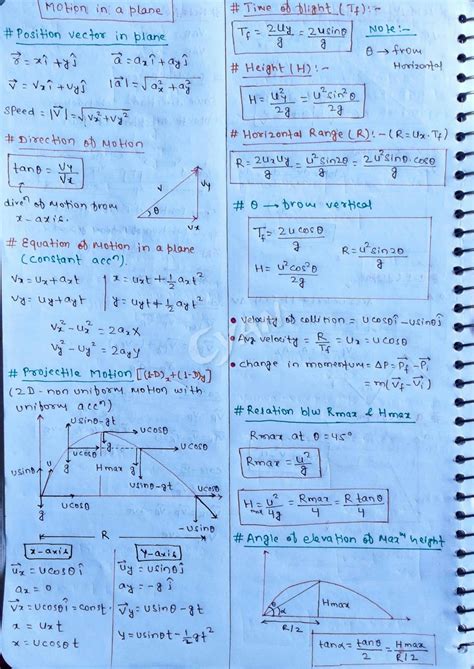 Motion in a plane
# Position vector in plane
r⃗ = xî + yĵ    a⃗ = axî + ayĵ
v⃗ = vxî + vyĵ    |a⃗| = √(ax² + ay²)
speed = |v⃗| = √(vx² + vy²)
# Direction of Motion
tanθ = vy/vx
v
vy
θ
vx
dirⁿ of motion from
x-axis.
# Equation of Motion in a plane
(constant accⁿ)
vx = ux + axt    x = uxt + ½axt²
vy = uy + ayt    y = uyt + ½ayt²
vx² - ux² = 2axx
vy² - uy² = 2ayy
# Projectile Motion [(1-D)x + (1-D)y]
(2D-non uniform motion with
uniform accⁿ)
usinθ-gt
ucosθ
g
ucosθ
usinθ
u
Hmax
g
usinθ-gt
θ
ucosθ
g
ucosθ
-usinθ
R
x-axis    y-axis
u⃗x = ucosθ î    u⃗y = usinθ ĵ
ax = 0    ay = -g ĵ
v⃗x = ucosθ î = const.    v⃗y = usinθ-gt
x = uxt    y = usinθt - ½gt²
x = ucosθt
# Time of flight (Tf):-
Tf = 2uy/g = 2usinθ/g    Note:-
θ → from
Horizontal
# Height (H):-
H = uy²/2g = u²sin²θ/2g
# Horizontal Range (R):- (R=ux.Tf)
R = 2uxuy/g = u²sin2θ/g = 2u²sinθ.cosθ/g
# θ → from vertical
Tf = 2ucosθ/g
R = u²sin2θ/g
H = u²cos²θ/2g
• velocity of collition = ucosθî - usinθĵ
• Avg velocity = R/Tf = ux = ucosθ
• change in momentum = ΔP = P⃗f - P⃗i
= m(v⃗f - v⃗i)
# Relation b/w Rmax & Hmax
Rmax at θ=45°
Rmax = u²/g
Hmax = u²/4g = Rmax/4 = Rtanθ/4
# Angle of elevation of Maxᵐ height
θ
α
Hmax
R/2
tanα = tanθ/2 = Hmax/R/2